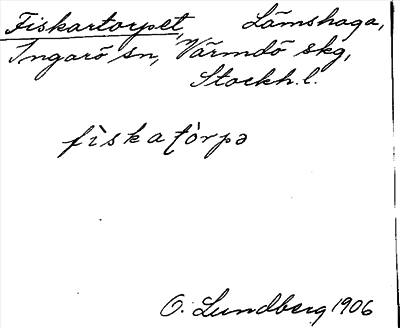 Fiskartorpet, Lämshaga,
Ingarö sn, Värmdö skg,
Stockh. l.
fìskatòrpə
O. Lundberg 1906